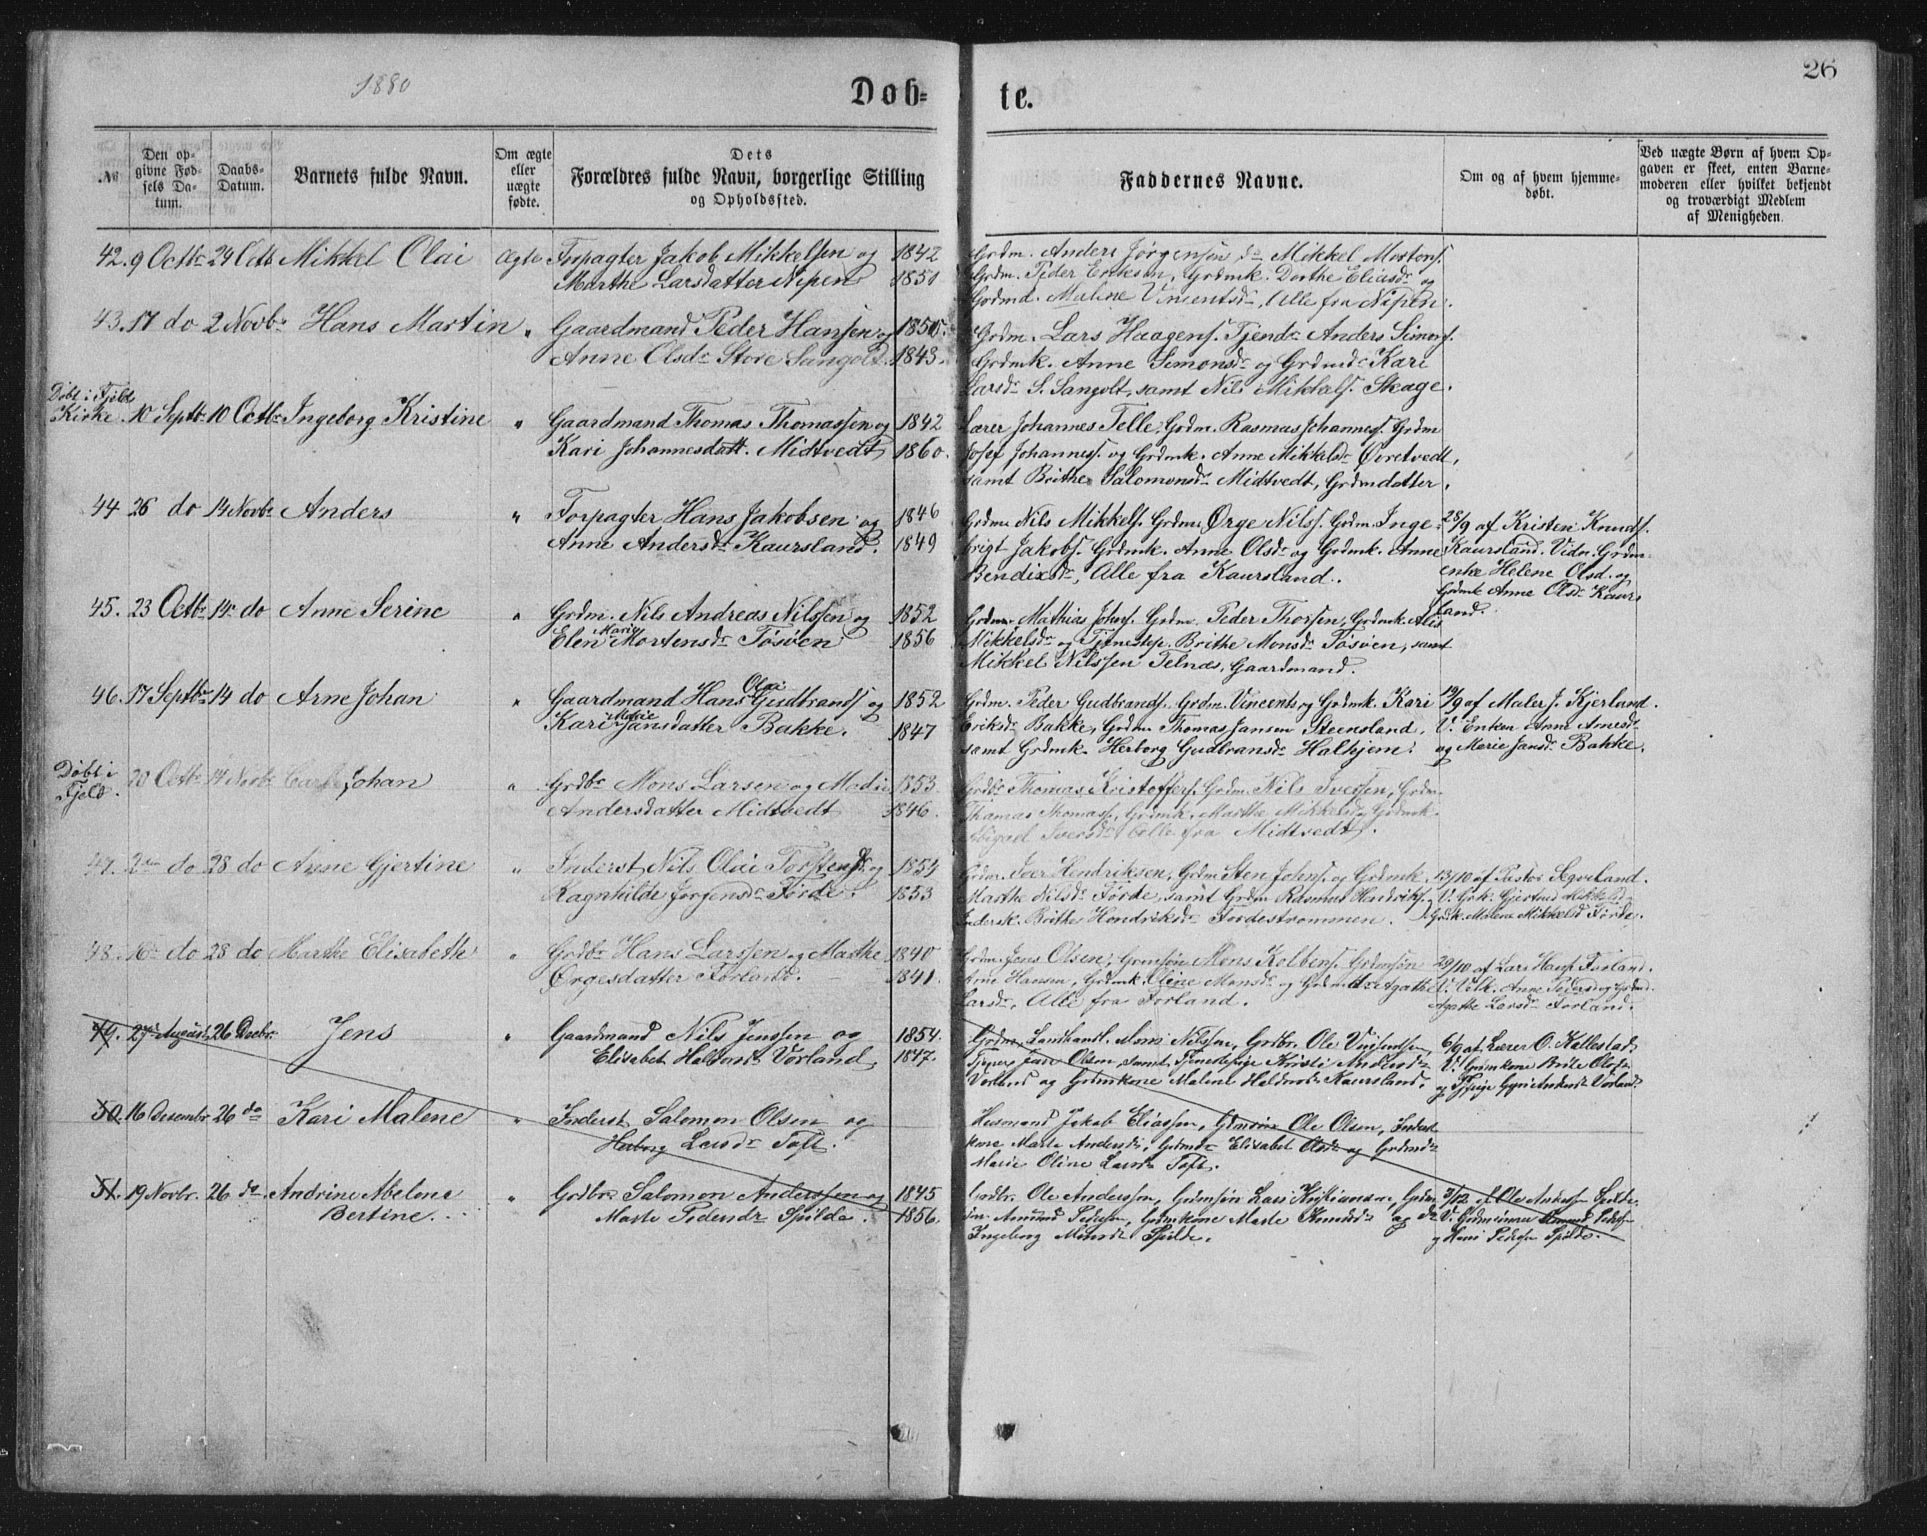 1880
Døb=
te.
26
№
Den op=
givne Fød=
sels Da=
tum.
Daabs=
Datum.
Barnets fulde Navn.
Om ægte
eller
uægte
fødte.
Dets
Forældres fulde Navn, borgerlige Stilling
og Opholdssted.
Faddernes Navne.
Om og af hvem hjemme=
døbt.
Ved uægte Børn af hvem Op=
gaven er skeet, enten Barne=
moderen eller hvilket bekjendt
og troværdigt Medlem
af Menigheden.
42. 9 Octbr 24 Octb Mikkel Olai Ægte Forpagter Jakob Mikkelsen og 1842
Marthe Larsdatter Nipen 1851
Grdm. Anders Jørgensen do Mikkel Mortens.
Grdm. Peder Eriksen, Grdmk. Dorthe Eliasdr og
Grdmd. Malene Vincentsdr, Alle fra Nipen.
43. 17 do 2 Novbr Hans Martin " Gaardmand Peder Hanssen og 1850
Anne Olsdr Store Sangolt. 1843.
Grdm. Lars Haagens. Tjendr Anders Simons.
Grdmk. Anne Simonsdr og Grdmdr Kari
Larsdr S. Sangolt, samt Nils Mikkels. Skage.
Døbt i Fjeld
Kirke. 10 Septbr 10 Octbr Ingeborg Kristine " Gaardmand Thomas Thomassen og 1842
Kari Johannesdatt. Midtvedt 1860.
Lærer Johannes Telle, Grdm. Rasmus Johanness. Grdm
Josef Johanness. og Grdmk. Anne Mikkelsdr Øvretvedt,
samt Brithe Salomonsdr Midtvedt, Grdmdatter.
44 26 do 14 Novbr Anders " Forpagter Hans Jakobsen og 1846
Anne Andersdr Kaursland. 1849
Grdm Nils Mikkels. Grdm. Ørge Nilss. Grdm. Inge=
brigt Jakobs. Grdmk. Anne Olsdr og Grdmk. Anne
Bendixdr, Alle fra Kaursland.
28/9 af Kristen Knuds.
Kaursland. Vidn. Grdm=
enke Helene Olsd. og
Grdmk Anne Olsdr Kaurs
land.
45. 23 Octbr 14 do Anne Serine " Grdm. Nils Andreas Nilssen og 1852
Elen Marie Mortensdr Tøsøen 1856
Grdm. Mathias Johns. Grdm. Peder Thorsen, Grdmk. Alis
Mikkelsdr og Tjenestep. Brithe Monsdr Tøsøen, samt
Mikkel Nilssen Telnæs, Gaardmand.
46. 17 Septbr 14 do Arne Johan " Gaardmand Hans Olai Gudbrands. og 1852
Kari Marie Jansdatter Bakke. 1847
Grdm. Peder Gudbrands. Grdm. Vincents og Grdmk. Kari
Eriksdr Bakke, Grdm. Thomas Jansen Steensland,
samt Grdmk. Herborg Gudbransdr Halhjem.
19/9 af Maler J. Kjerland.
V. Enken Anne Arnesdr
og Marie Jansdr Bakke.
Døbt i
Fjeld. 20 Octbr 14 Novbr Carl Johan " Grdbr Mons Larsen og Madi 1853.
Andersdatter Midtvedt 1846.
Grdbr Thomas Kristoffers. Grdm. Nils Iverssen, Grdm.
Thomas Thomass, Grdmk. Marthe Mikkelsdr Grdmk.
Abigael Iversdr Alle fra Midtvedt.
47. 2den do 28 do Anne Gjertine " Inderst Nils Olai Torstens. og 1854
Ragnhilde Jørgensdr Førde. 1853
Grdm. Iver Hendriksen, Grdm Sten Johns. og Grdmk.
Marthe Nilsdr Førde, samt Grdm Rasmus Hendriks. og
Indersk. Brithe Hendriksdr Førdestrømmen.
13/10 af Pastor Segveland.
V. Grk. Gjertrud Mikkelsd.
Grk. Malene Mikkelsd Førde.
48. 16 do 28 do Marthe Elisabeth " Grdbr Hans Larssen og Marthe 1840
Ørgesdatter Forland. 1841.
Grdm. Jens Olsen, Grmsøn Mons Kolbens. Grdmsøn
Arne Hansen, Grdmk. Oline Monsdr og Grdm Agathe
Larsdr, Alle fra Forland.
29/10 af Lars Hansen Forland.
V. Anne Pedersd og Grdmd.
Agathe Larsdr Forland.
49. 27 August 26 Decbr. Jens " Gaardmand Nils Jenssen og 1854.
Elisabet Haldorsdr Vorland 1847.
Grdm. Landhandl. Mons Nilssen, Grdbr. Ole Vinsentsen,
Olsen, samt Tjenestepige Kristi Andersdr
Vorland og Grdmkone Malene Haldorsdr Kaursland.
6/9 af Lærer O. Kallestad
V. Grdmkone Brite Olsdr
og Vorland.
50. 16 Desembr 26 do Kari Malene " Inderst Salomon Olsen og
Herborg Larsdr Toft.
Husmand Jakob Eliassen, Grdmsøn Ole Olsen, Inderst
kone Marte Andersdr, Grdmdr Elisabet Olsdr og Grdmdr
Marie Oline Larsdr Toft.
51. 19 Novbr. 26 do Andrine Abelone
Bertine. " Grdbr. Salomon Anderssen og 1845
Marte Pedersdr Spilde. 1856.
Grdbr. Ole Anderssen, Grdmsøn Lars Kristiansen, Grdm
søn Amund Pedersen, Grdmkone Marte Knudsdr og do
Ingeborg Monsdr Spilde.
3/12 af Ole Anderssen Spilde
V. Grdmsønner Amund Peders.
og Hans Pedersen Spilde.